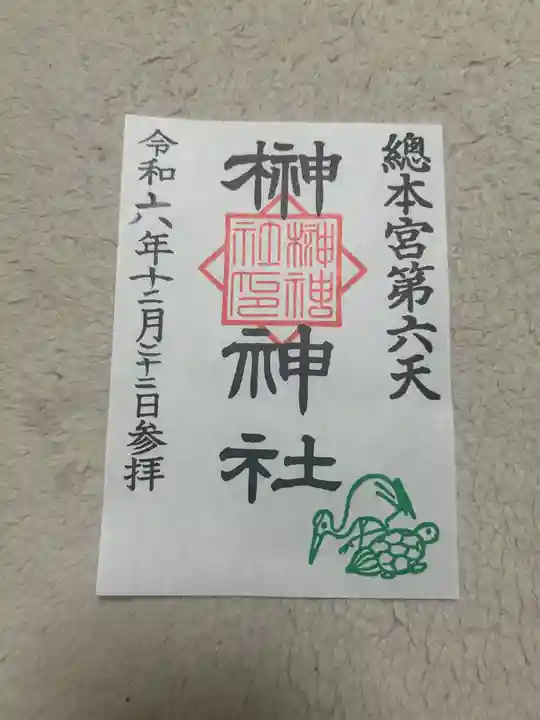 總本宮第六天
榊神社
榊神
社印
令和六年十二月二十二日参拝